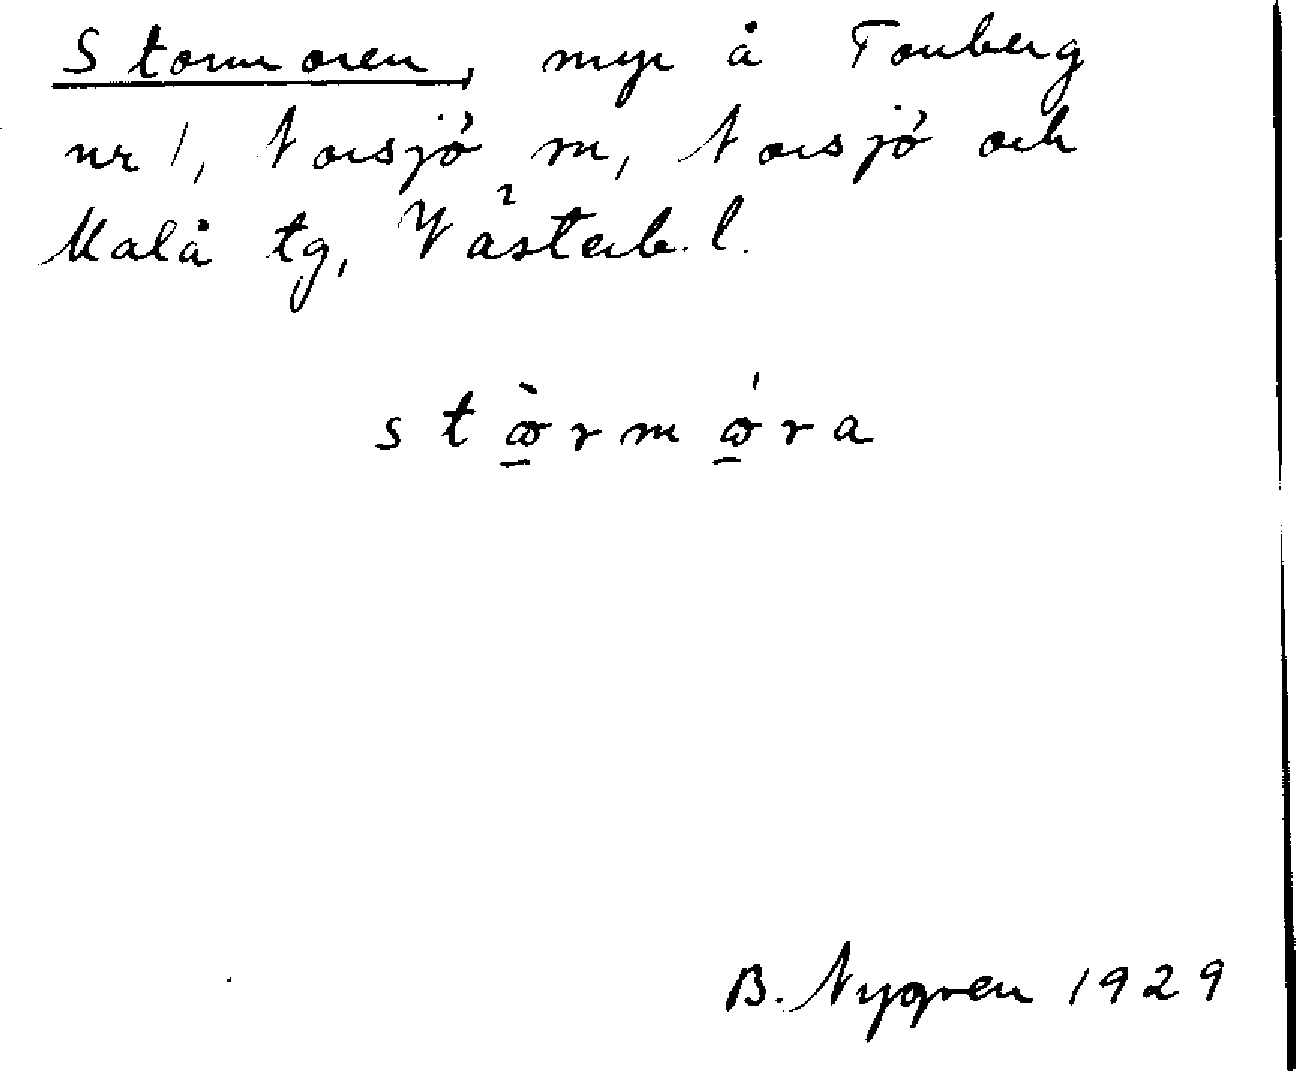 Stormoren, myr å Forberg
nr 1, Norsjö sn, Norsjö och
Malå tg, Västerb. l.
stὼ̱rmώ̱ra
B. Nygren 1929